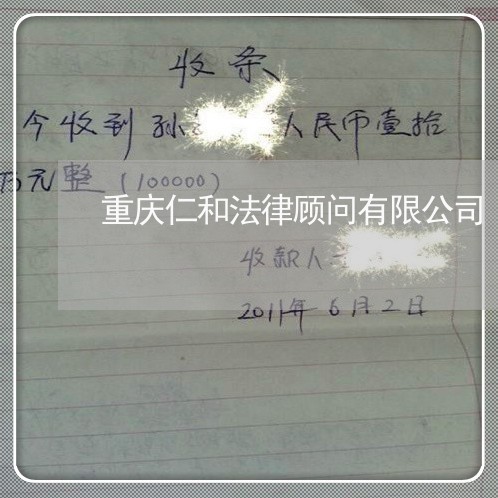 收条
今收到孙 人民币壹拾
万元整(100000)
重庆仁和法律顾问有限公司
收款人
2011年6月2日